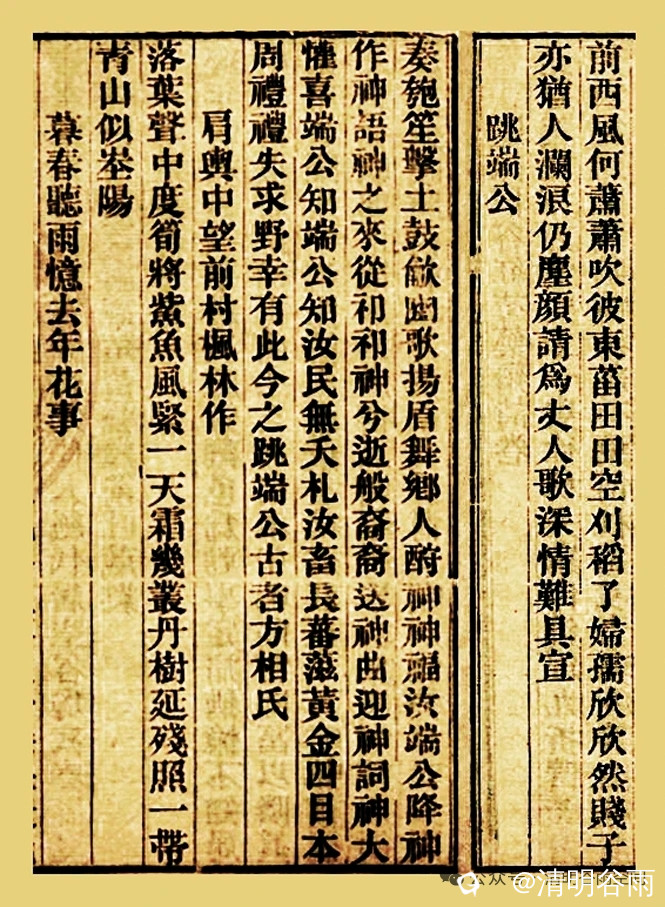 前西風何蕭蕭吹彼東菑田田空刈稻了婦孺欣欣然賤子
亦猶人瀾浪仍塵顏請為丈人歌深情難具宣
跳端公
奏匏笙擊土鼓豳歌揚盾舞鄉人酧神神福汝端公降神
作神語神之來從祁祁神兮逝般裔裔送神曲迎神詞神大
懽喜端公知端公知汝民無夭札汝畜長蕃滋黃金四目本
周禮禮失求野幸有此今之跳端公古者方相氏
肩輿中望前村楓林作
落葉聲中度筍將魚風緊一天霜幾叢丹樹延殘照一帶
青山似陽
暮春聽雨憶去年花事
公众号
@清明谷雨